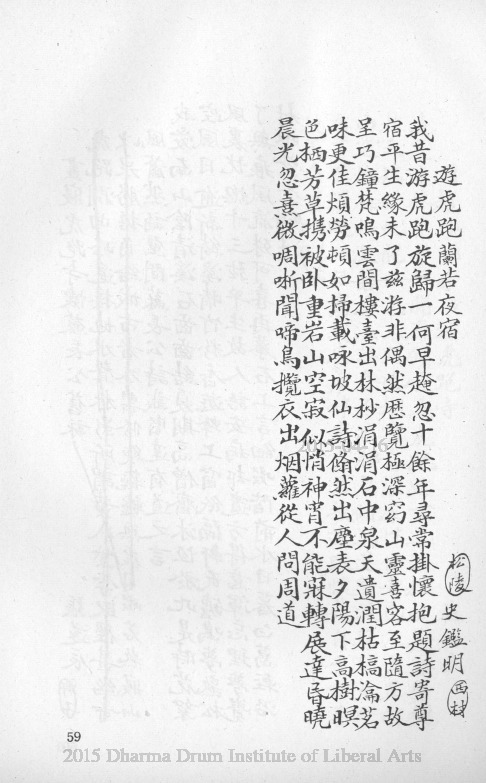 遊虎跑蘭若夜宿
松陵 史鑑明 西村
我昔游虎跑旋歸一何早忽十餘年尋常掛懷抱題詩寄尊
宿平生緣未了兹游非偶然歷覽極深窈山靈喜客至隨方故
呈巧鐘梵鳴雲間樓臺出林杪涓涓石中泉天遺潤枯槁瀹茗
味更佳煩勞頓如掃載咏坡仙詩翛然出塵表夕陽下高樹暝
色栖芳草攜被卧重岩山空寂似悄神宵不能寐轉展達昏曉
晨光忽熹微啁哳聞啼鳥攬衣出烟蘿從人問周道
59
2015 Dharma Drum Institute of Liberal Arts